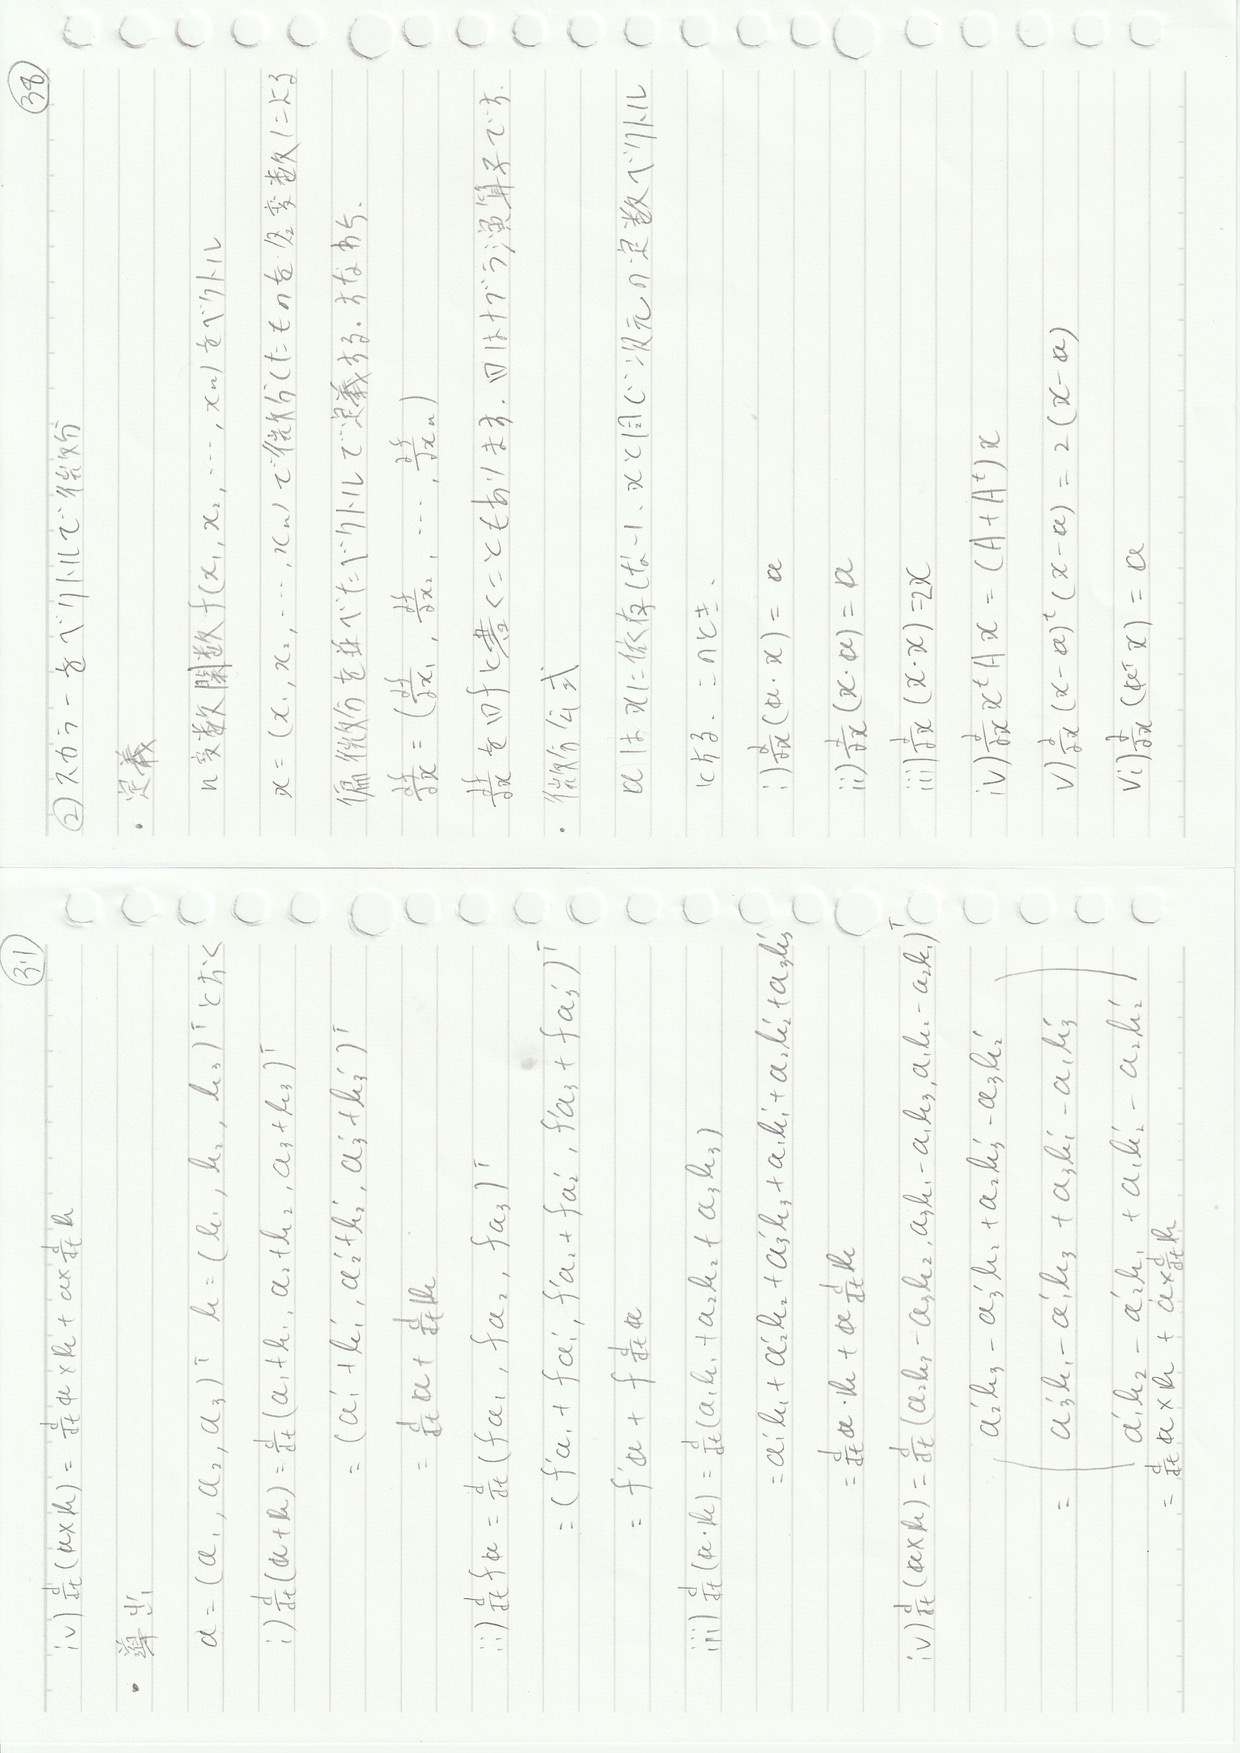 31
iv) d/dt (a×b) = d/dt a × b + a × d/dt b
・導出
a = (a₁, a₂, a₃)ᵀ b = (b₁, b₂, b₃)ᵀ とおく
i) d/dt (a+b) = d/dt (a₁+b₁, a₂+b₂, a₃+b₃)ᵀ
= (a₁'+b₁', a₂'+b₂', a₃'+b₃')ᵀ
= d/dt a + d/dt b
ii) d/dt fa = d/dt (fa₁, fa₂, fa₃)ᵀ
= (f'a₁ + fa₁', f'a₂ + fa₂', f'a₃ + fa₃')ᵀ
= f'a + f d/dt a
iii) d/dt (a・b) = d/dt (a₁b₁ + a₂b₂ + a₃b₃)
= a₁'b₁ + a₂'b₂ + a₃'b₃ + a₁b₁' + a₂b₂' + a₃b₃'
= d/dt a・b + a d/dt b
iv) d/dt (a×b) = d/dt (a₂b₃ - a₃b₂, a₃b₁ - a₁b₃, a₁b₁ - a₂b₁)ᵀ
a₂'b₃ - a₃'b₂ + a₂b₃' - a₃b₂'
= ( a₃'b₁ - a₁'b₃ + a₃b₁' - a₁b₃' )
a₁'b₂ - a₂'b₁ + a₁b₂' - a₂b₂'
= d/dt a × b + a × d/dt b
38
② スカラーをベクトルで微分
・定義
n変数関数 f(x₁, x₂, …, xₙ) をベクトル
x = (x₁, x₂, …, xₙ) で微分したものを各変数による
偏微分を並べたベクトルで定義する. すなわち.
∂f/∂x = (∂f/∂x₁, ∂f/∂x₂, …, ∂f/∂xₙ)
∂f/∂x を∇fと書くこともあります. ∇はナブラ演算子です.
・微分公式
aはxに依存しない、xと同じ次元の定数ベクトル
とする. このとき.
i) ∂/∂x (a・x) = a
ii) ∂/∂x (x・a) = a
iii) ∂/∂x (x・x) = 2x
iv) ∂/∂x xᵗAx = (A+Aᵗ)x
v) ∂/∂x (x-a)ᵗ(x-a) = 2(x-a)
vi) ∂/∂x (aᵀx) = a